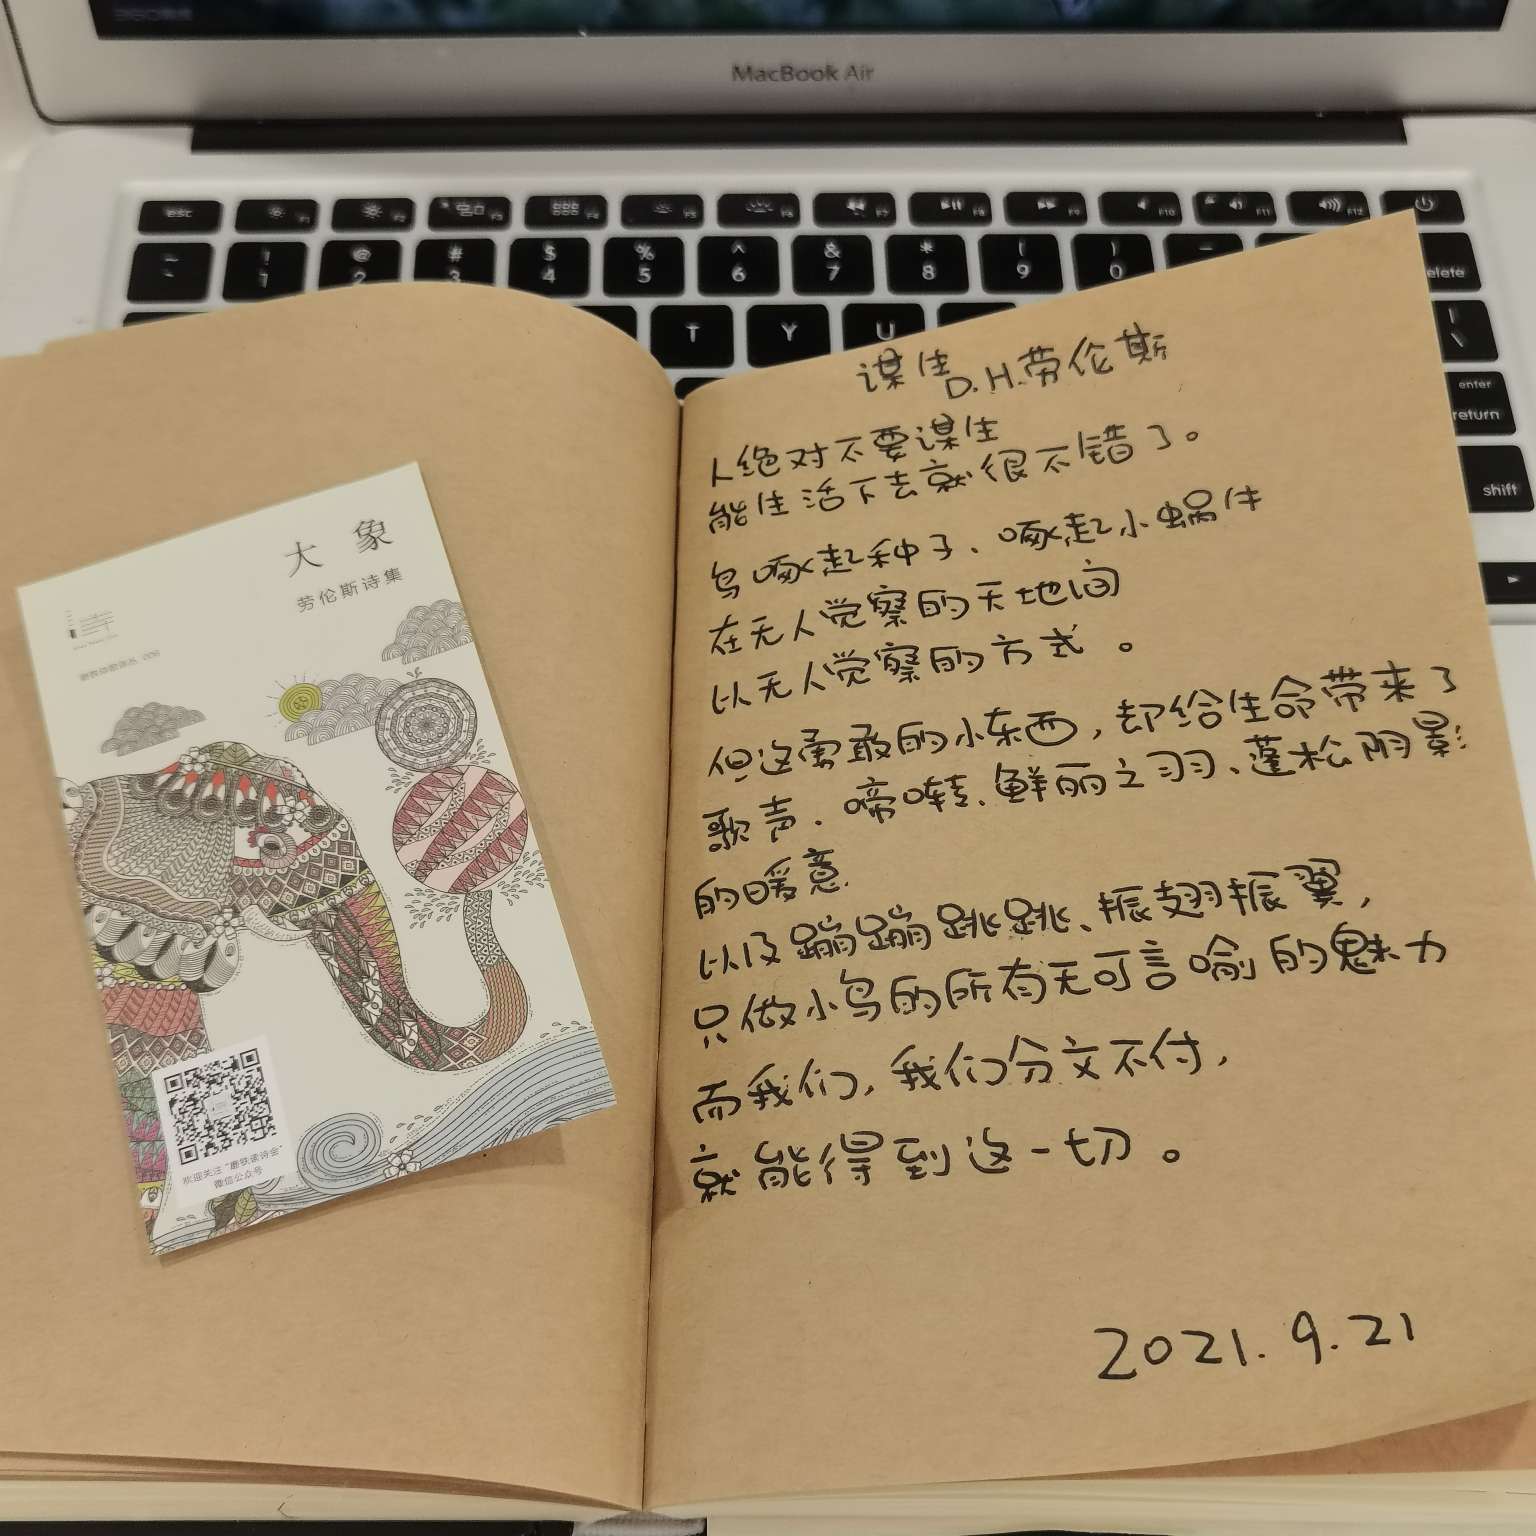 MacBook Air
esc
F1
F2
F3
F4
F5
F6
F7
F8
F9
F10
F11
F12
~
`
!
1
@
2
#
3
$
4
%
5
^
6
&
7
*
8
(
9
)
0
elete
T
Y
U
|
\
enter
return
shift
大象
劳伦斯诗集
欢迎关注“磨铁读诗会”
微信公众号
谋生 D.H.劳伦斯
人绝对不要谋生
能生活下去就很不错了。
鸟啄起种子、啄起小蜗牛
在无人觉察的天地间
以无人觉察的方式。
但这勇敢的小东西,却给生命带来了
歌声、啼啭、鲜丽之羽、蓬松阴影
的暖意
以及蹦蹦跳跳、振翅振翼,
只做小鸟的所有无可言喻的魅力
而我们,我们分文不付,
就能得到这一切。
2021.9.21